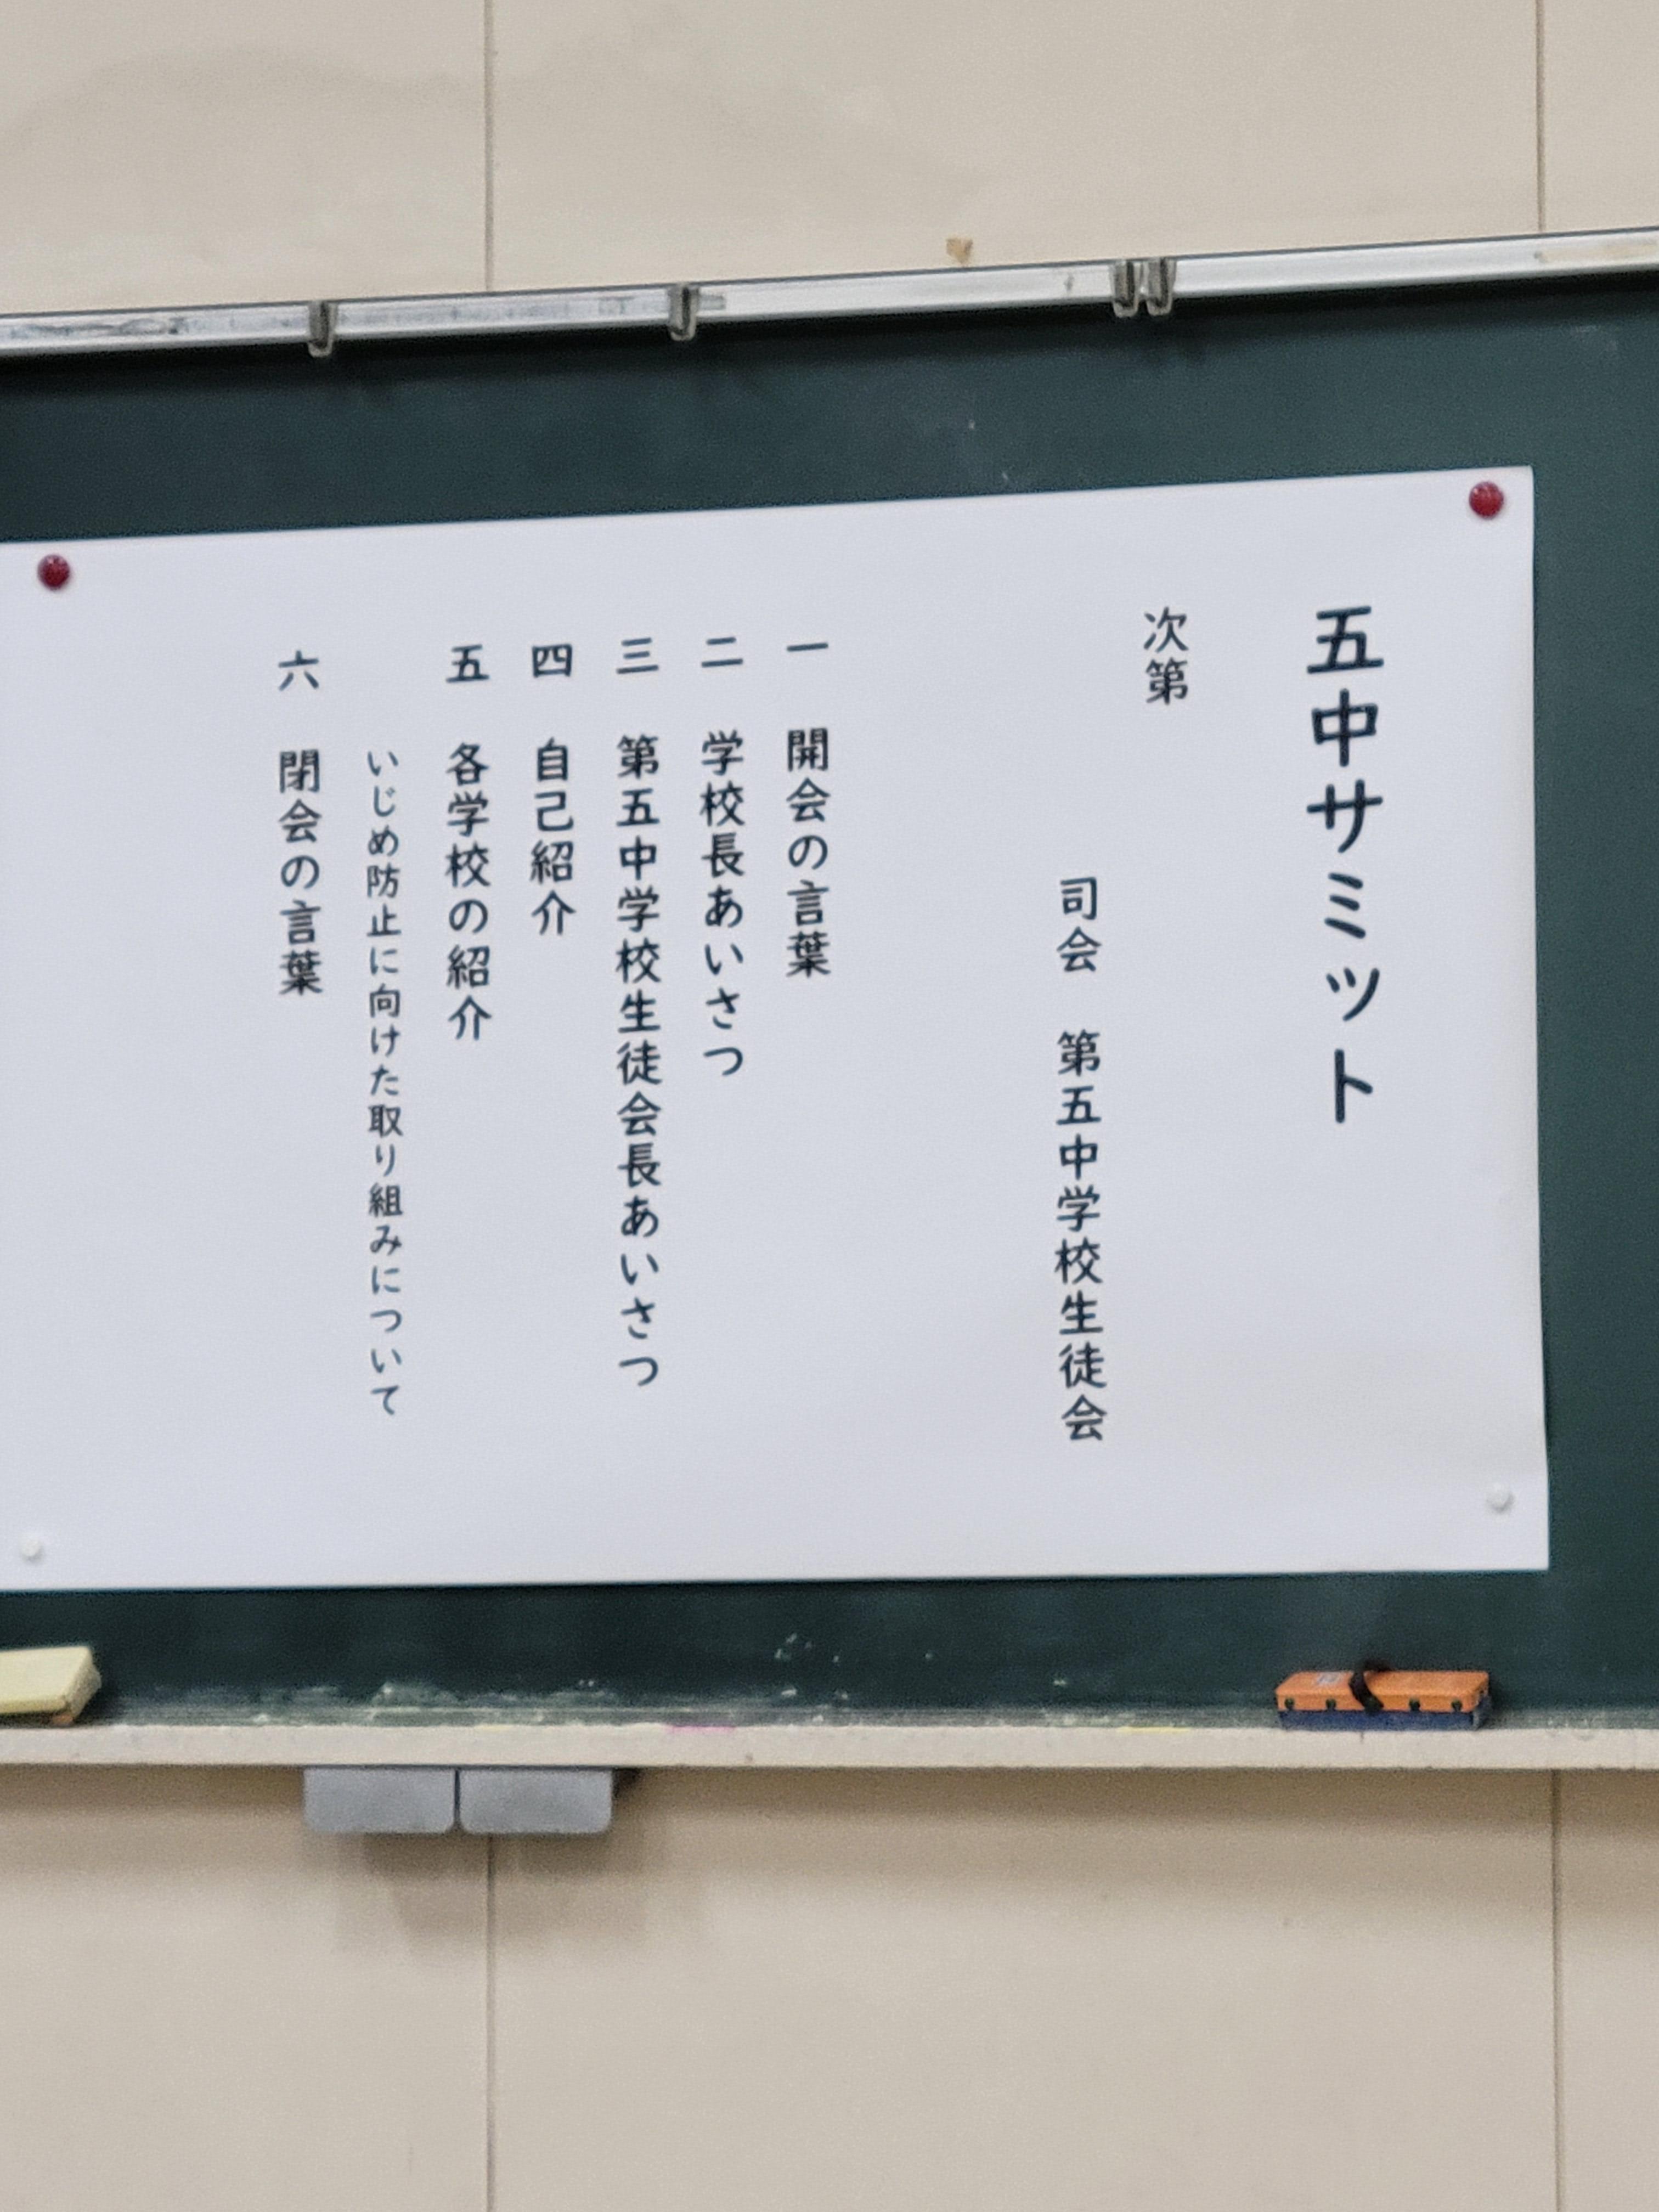 五中サミット
次第
司会　第五中学校生徒会
一　開会の言葉
二　学校長あいさつ
三　第五中学校生徒会長あいさつ
四　自己紹介
五　各学校の紹介
いじめ防止に向けた取り組みについて
六　閉会の言葉